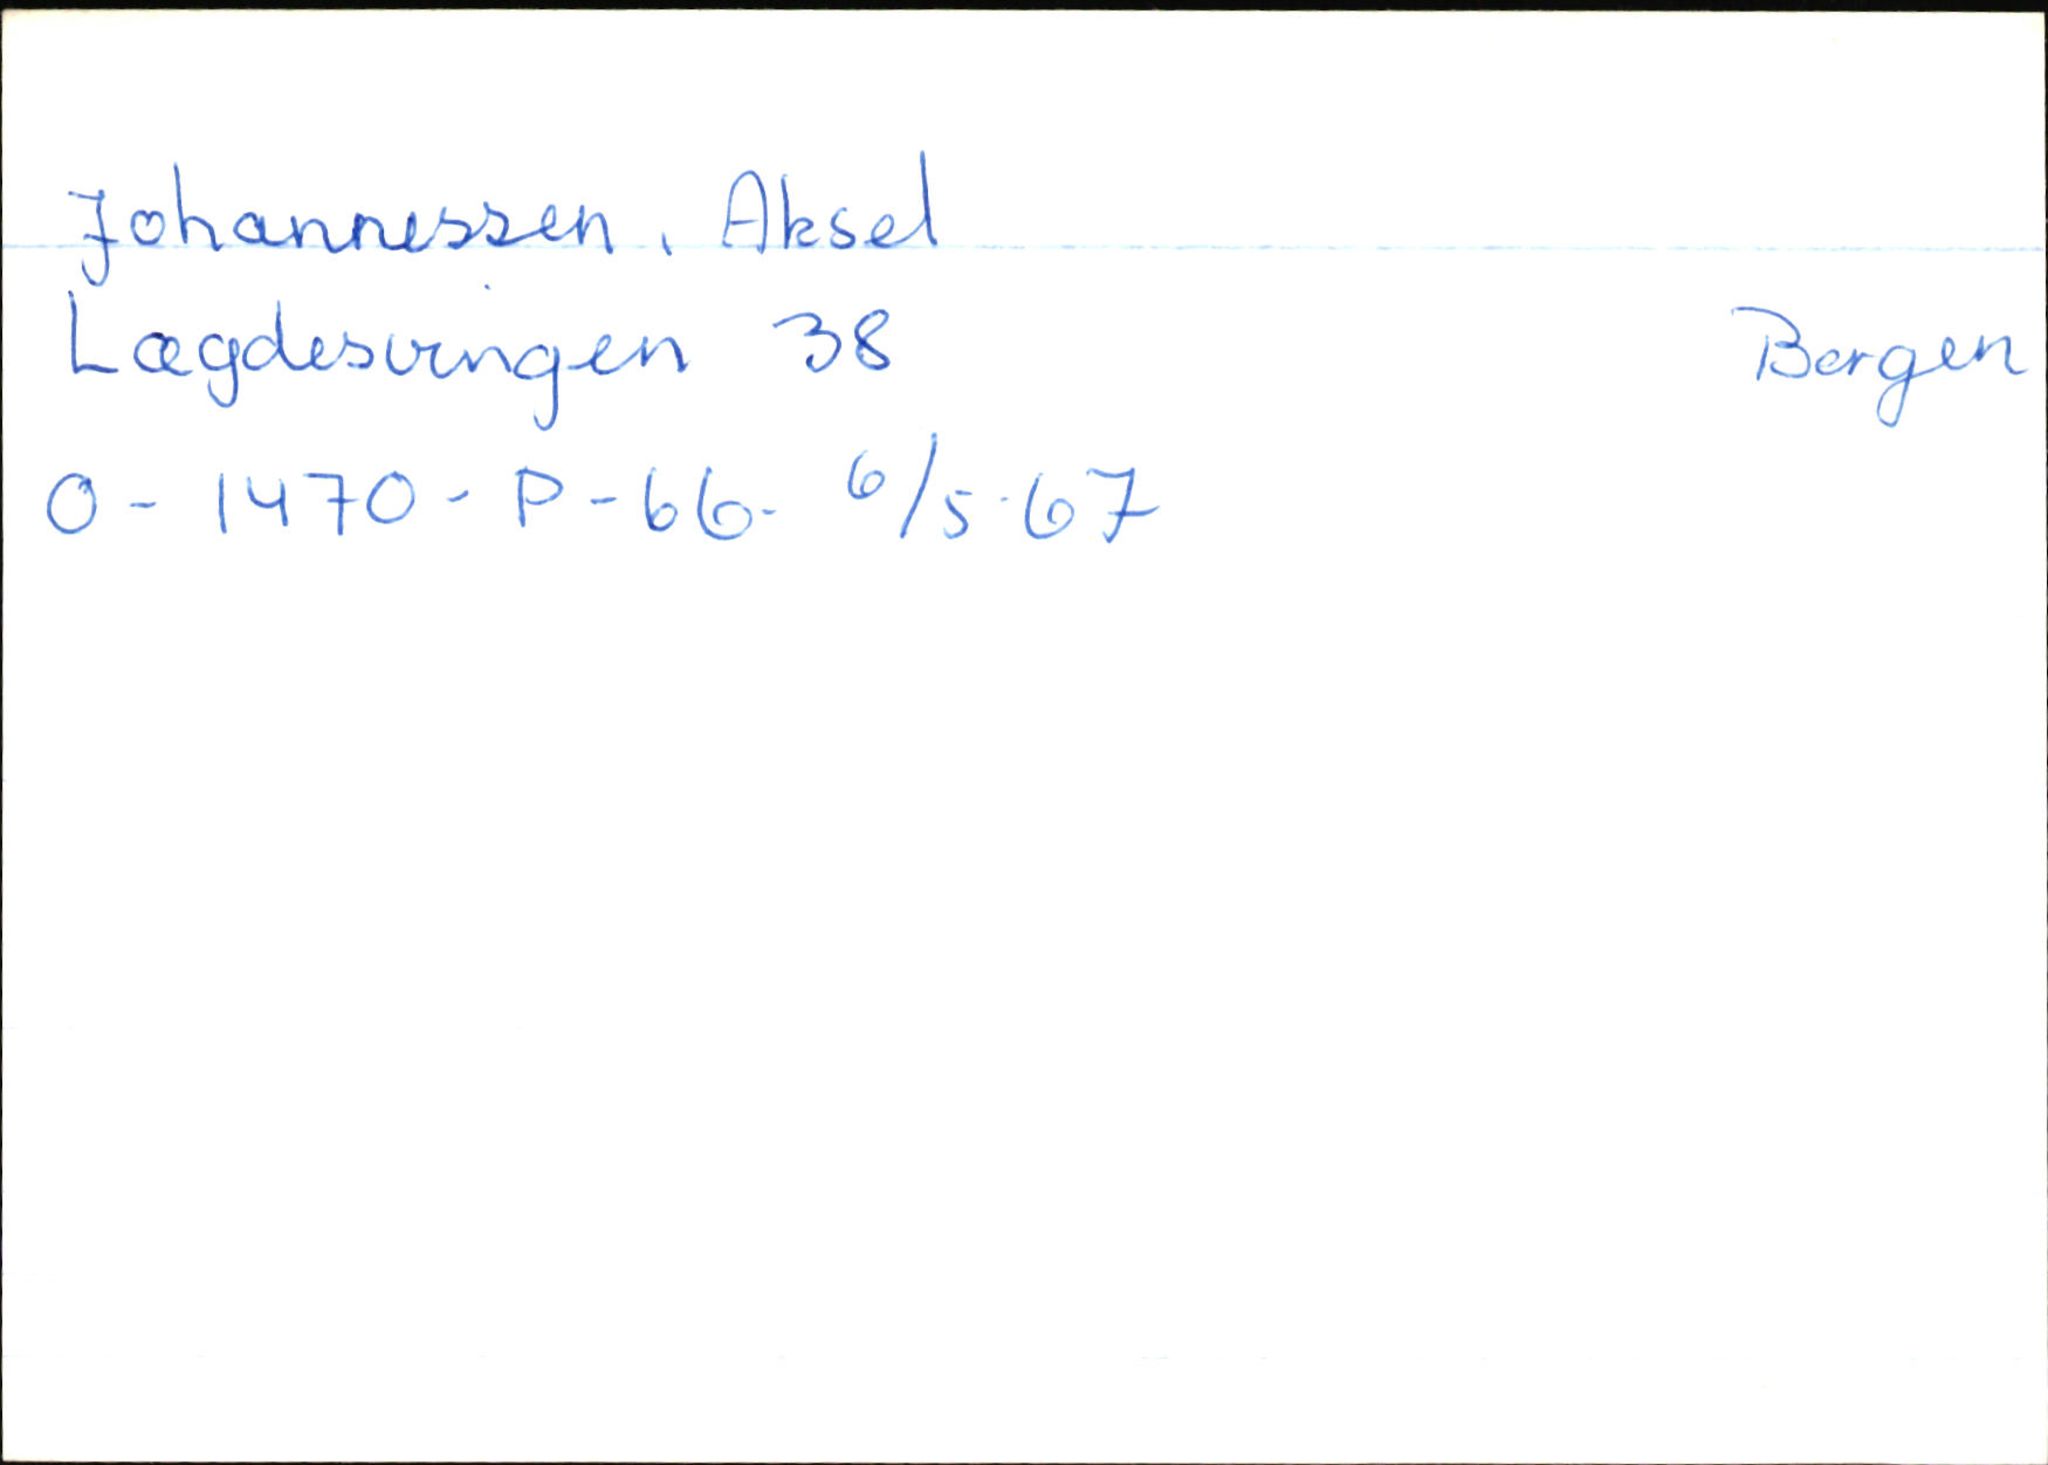 Johannessen, Aksel
Lægdesvingen 38 Bergen
O - 1470 - P - 66. 6/5-67